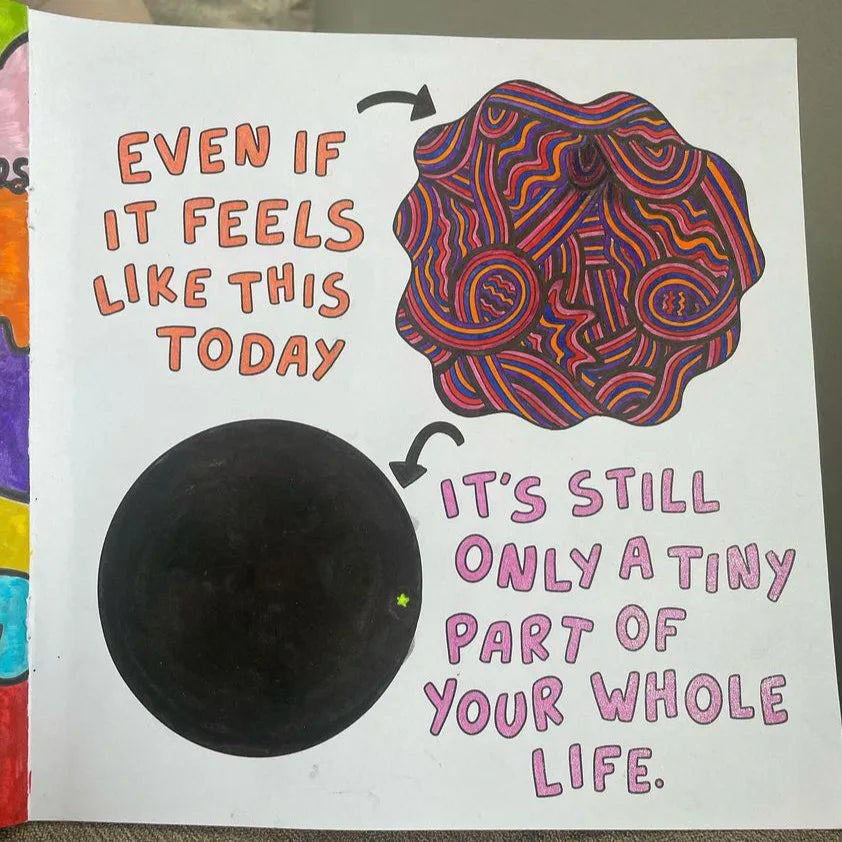 EVEN IF
IT FEELS
LIKE THIS
TODAY
IT'S STILL
ONLY A TINY
PART OF
YOUR WHOLE
LIFE.